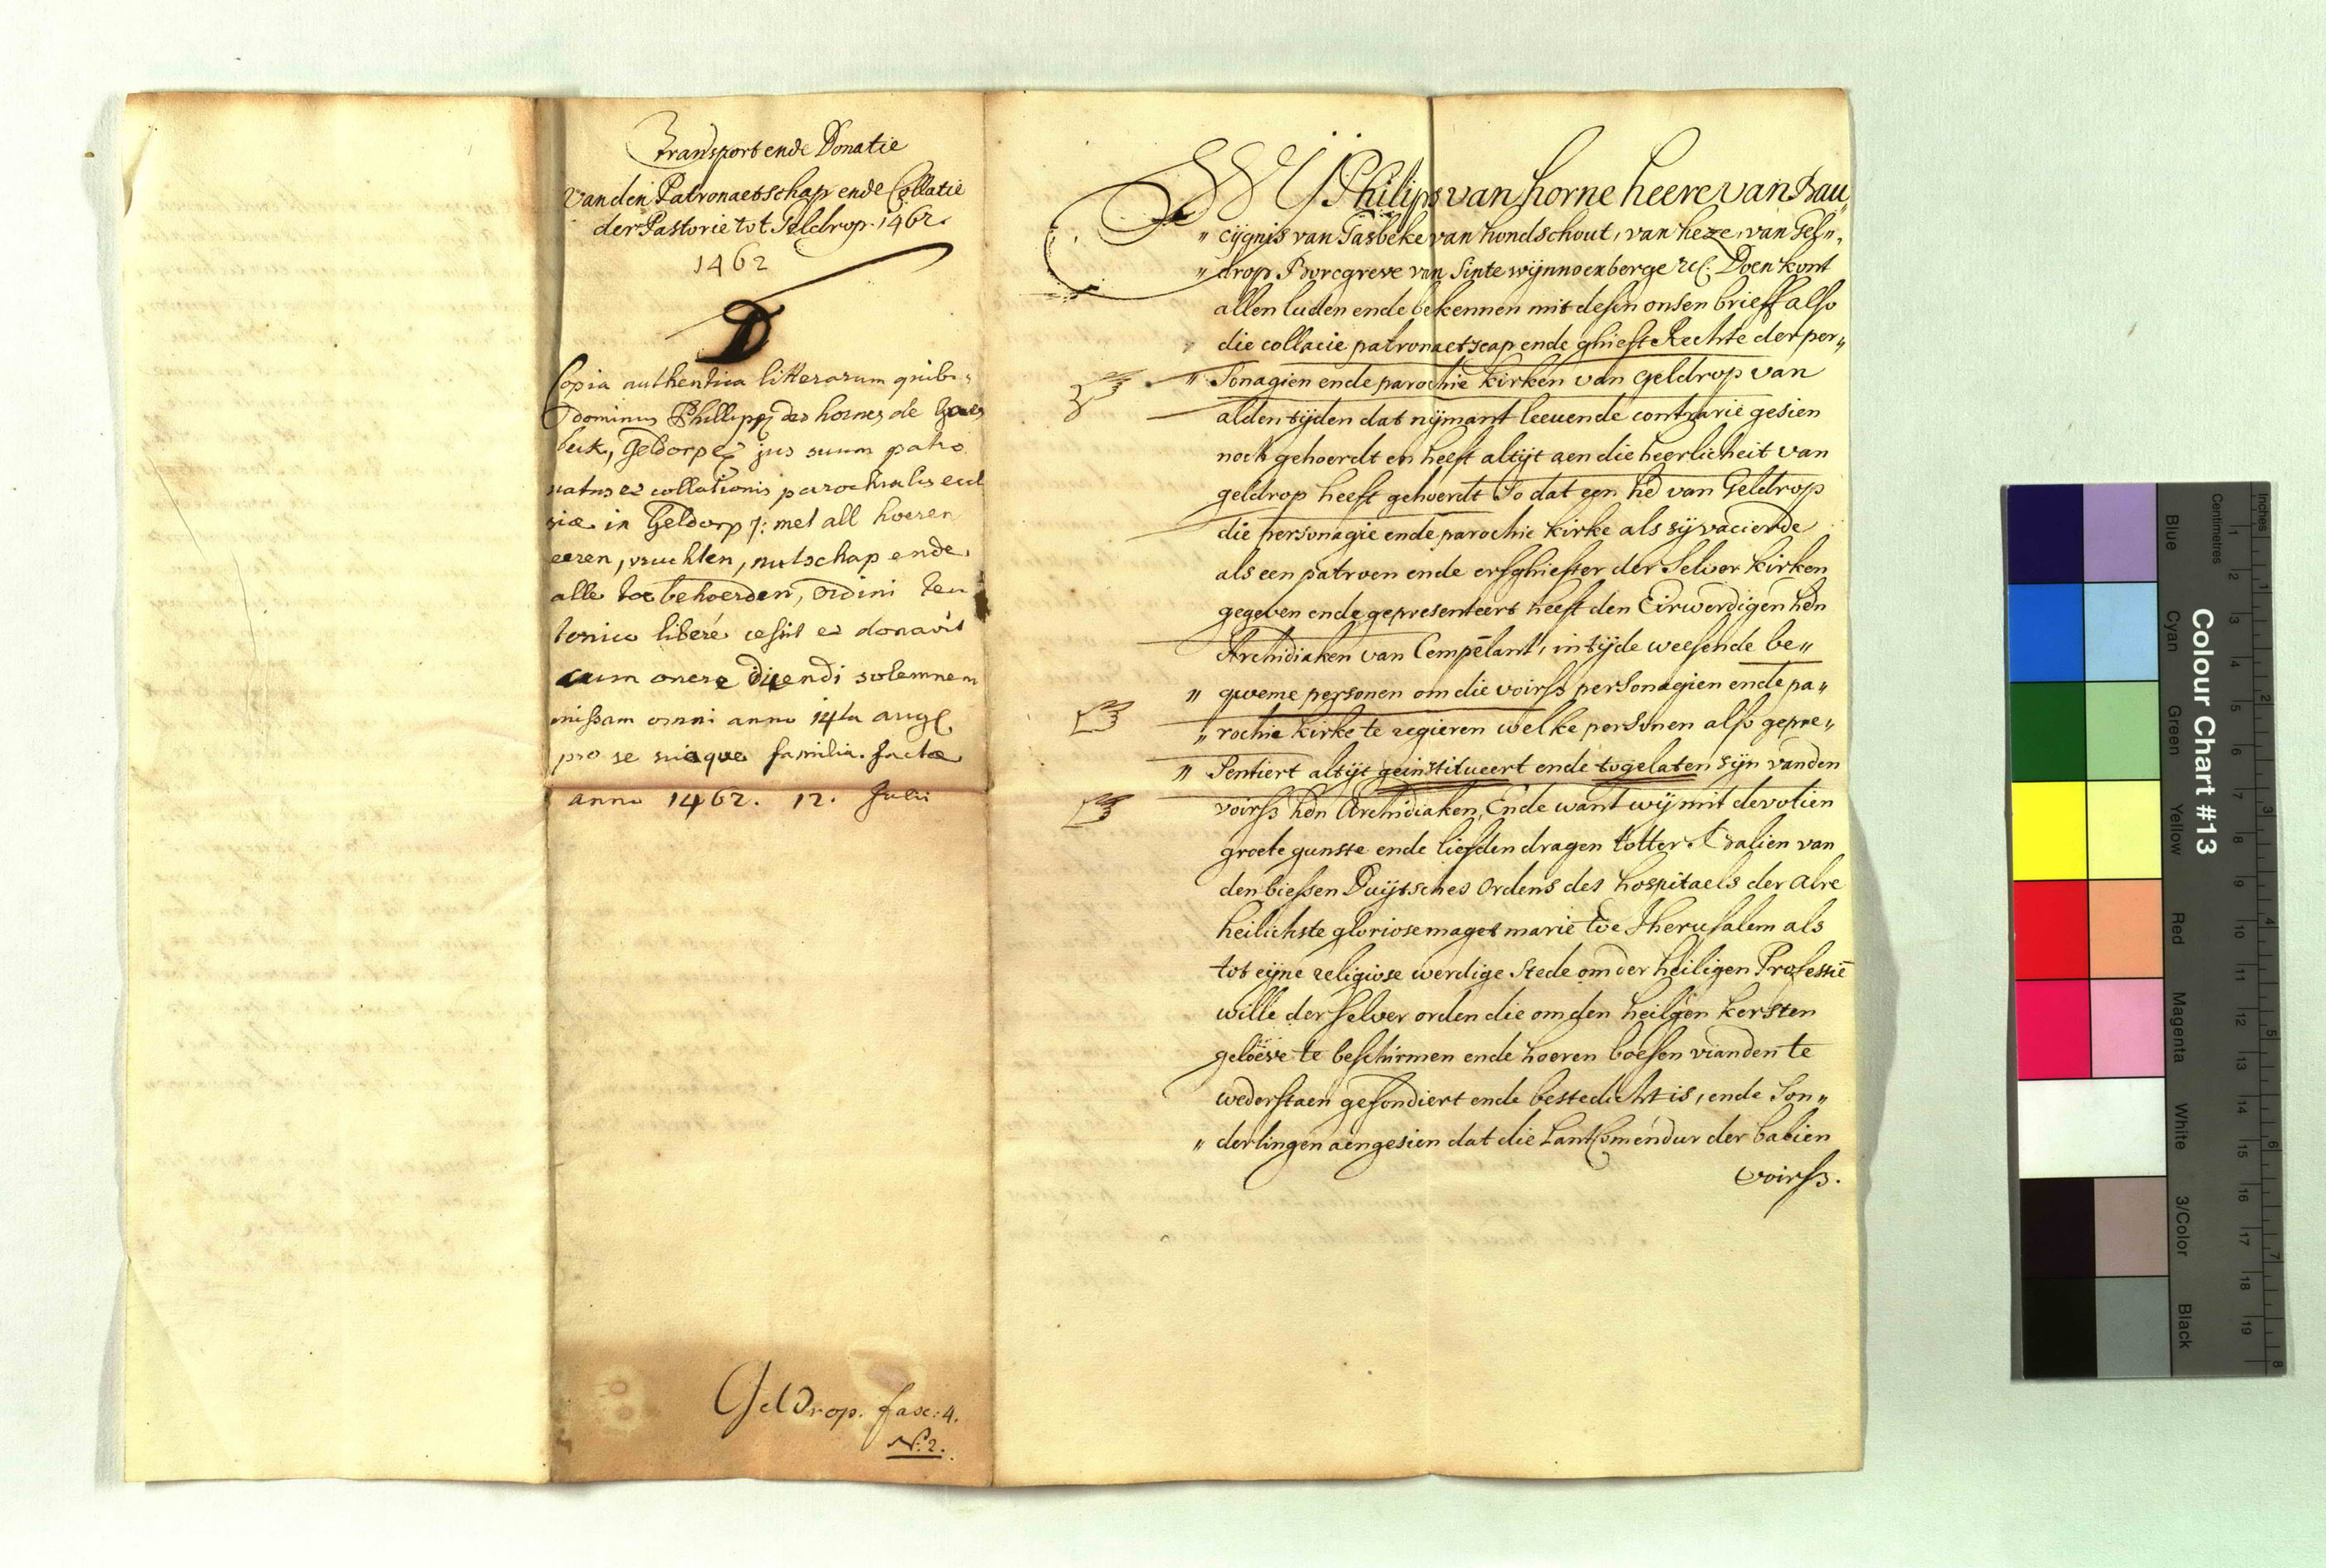 Transport ende Donatie
vanden Patronaetschap ende Collatie
der Pastorie tot Geldrop. 1462.
1462
D
Copia authentica litterarum quib,
dominus Philippus des hornes de gaes
beek, Geldorp jus suum patro
natus et collationis parochialis eccl
siæ in Geldorp met all hoeren
eeren, vruchten, nutschap ende
alle toebehoerden, ordini teu
tonico liberé cessit et donavit
cum onere dicendi solemnem
missam omni anno 14ta aug
pro se suisque familia. facta
anno 1462. 12. Julii
Geldrop. fasc: 4.
N: 2.
WIJ Philips van horne heere van Bau„
„ cijgnis van Gasbeke van hondschout, van heze, van Gel„
„ drop Borcgreve van Sinte wijnnoxberge &c. Doen kont
allen luden ende bekennen mit desen onsen brieff also
die collacie patronaetscap ende ghieft Rechte der per„
„ sonagien ende parochie kirken van geldrop van
alden tijden dat nijmant leeuende contrarie gesien
noch gehoerdt en heeft altijt aen die heerlicheit van
geldrop heeft gehoerdt So dat een he van Geldrop
die personagie ende parochie kirke als sij vacierde
als een patroen ende erfghiefter der selver kirken
gegeven ende gepresenteert heeft den Eirwerdigen hen
Archidiaken van Campēlant, in tijde weesende be„
„ qweme personen om die voirss personagien ende pa„
„ rochie kirke te regieren welke personen also gepre„
„ sentiert altijt geinstitueert ende togelaten sijn vanden
voirss hen Archidiaken, Ende want wij mit devotien
groete gunste ende liefden dragen totter Balien van
den biessen Duijtsches Ordens des hospitaels der alre
heilichste gloriose maget marie toe Jherusalem als
tot eijne religiose werdige stede om der heiligen Professie
wille der selver orden die om den heilgen kersten
geloeve te beschirmen ende hoeren boesen vianden te
wederstaen gefondiert ende bestedicht is, ende Son„
„ derlingen aengesien dat die Lantcomendur der balien
voirss.
Colour Chart #13
Blue
Cyan
Green
Yellow
Red
Magenta
White
3/Color
Black
Centimetres
1 2 3 4 5 6 7 8 9 10 11 12 13 14 15 16 17 18 19
Inches
1 2 3 4 5 6 7 8